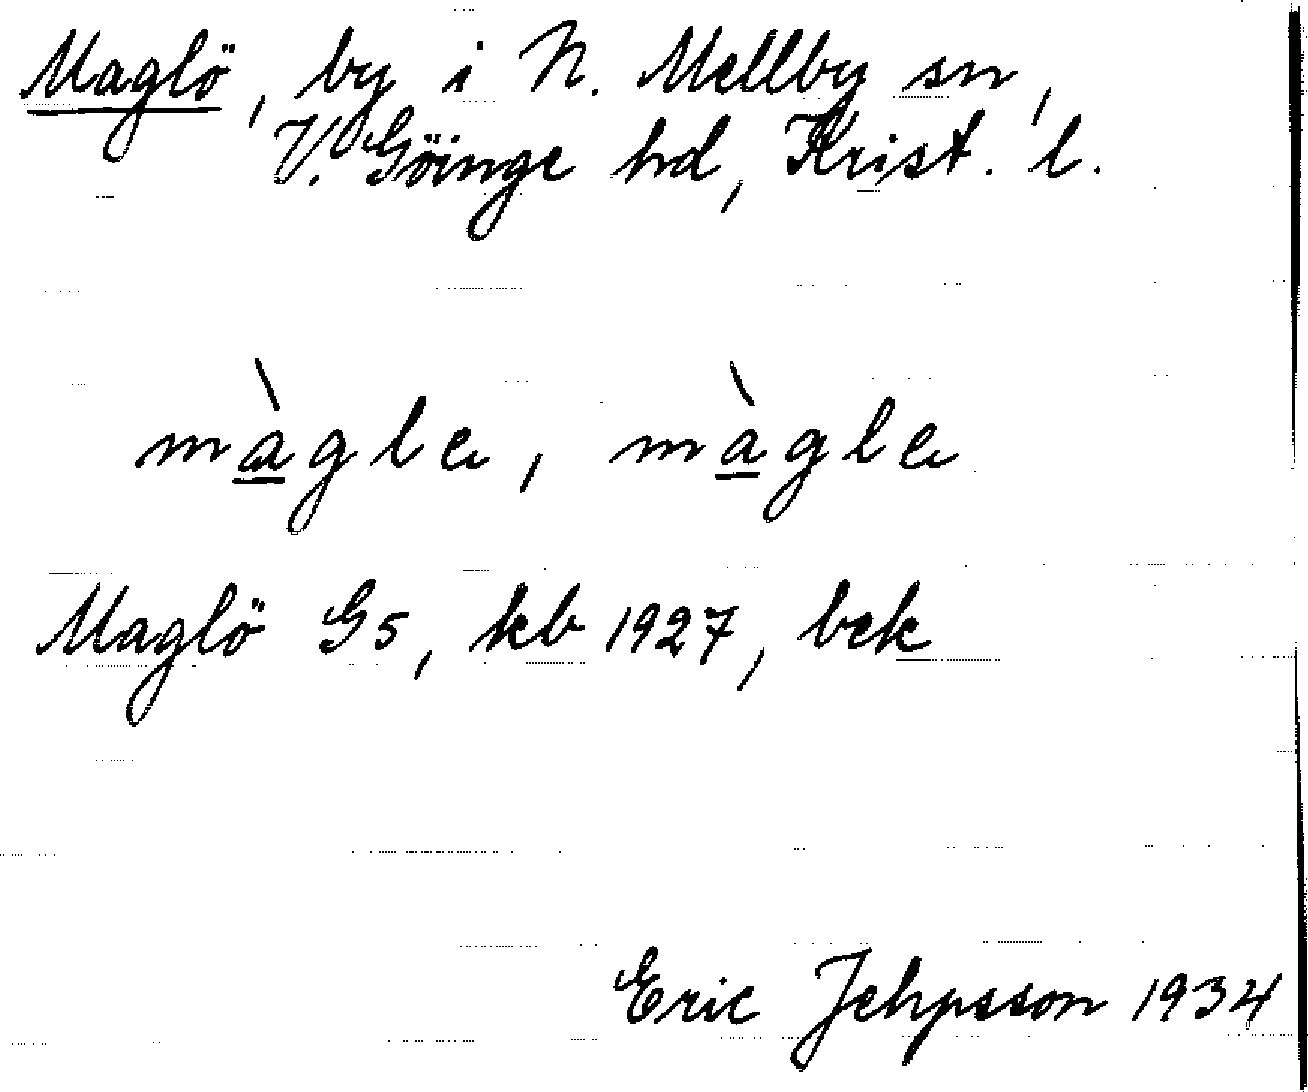 Maglö, by i N. Mellby sn,
V. Göinge hd, Krist. l.
màgle, màgle
Maglö G5, kb 1927, bek
Eric Jehpsson 1934